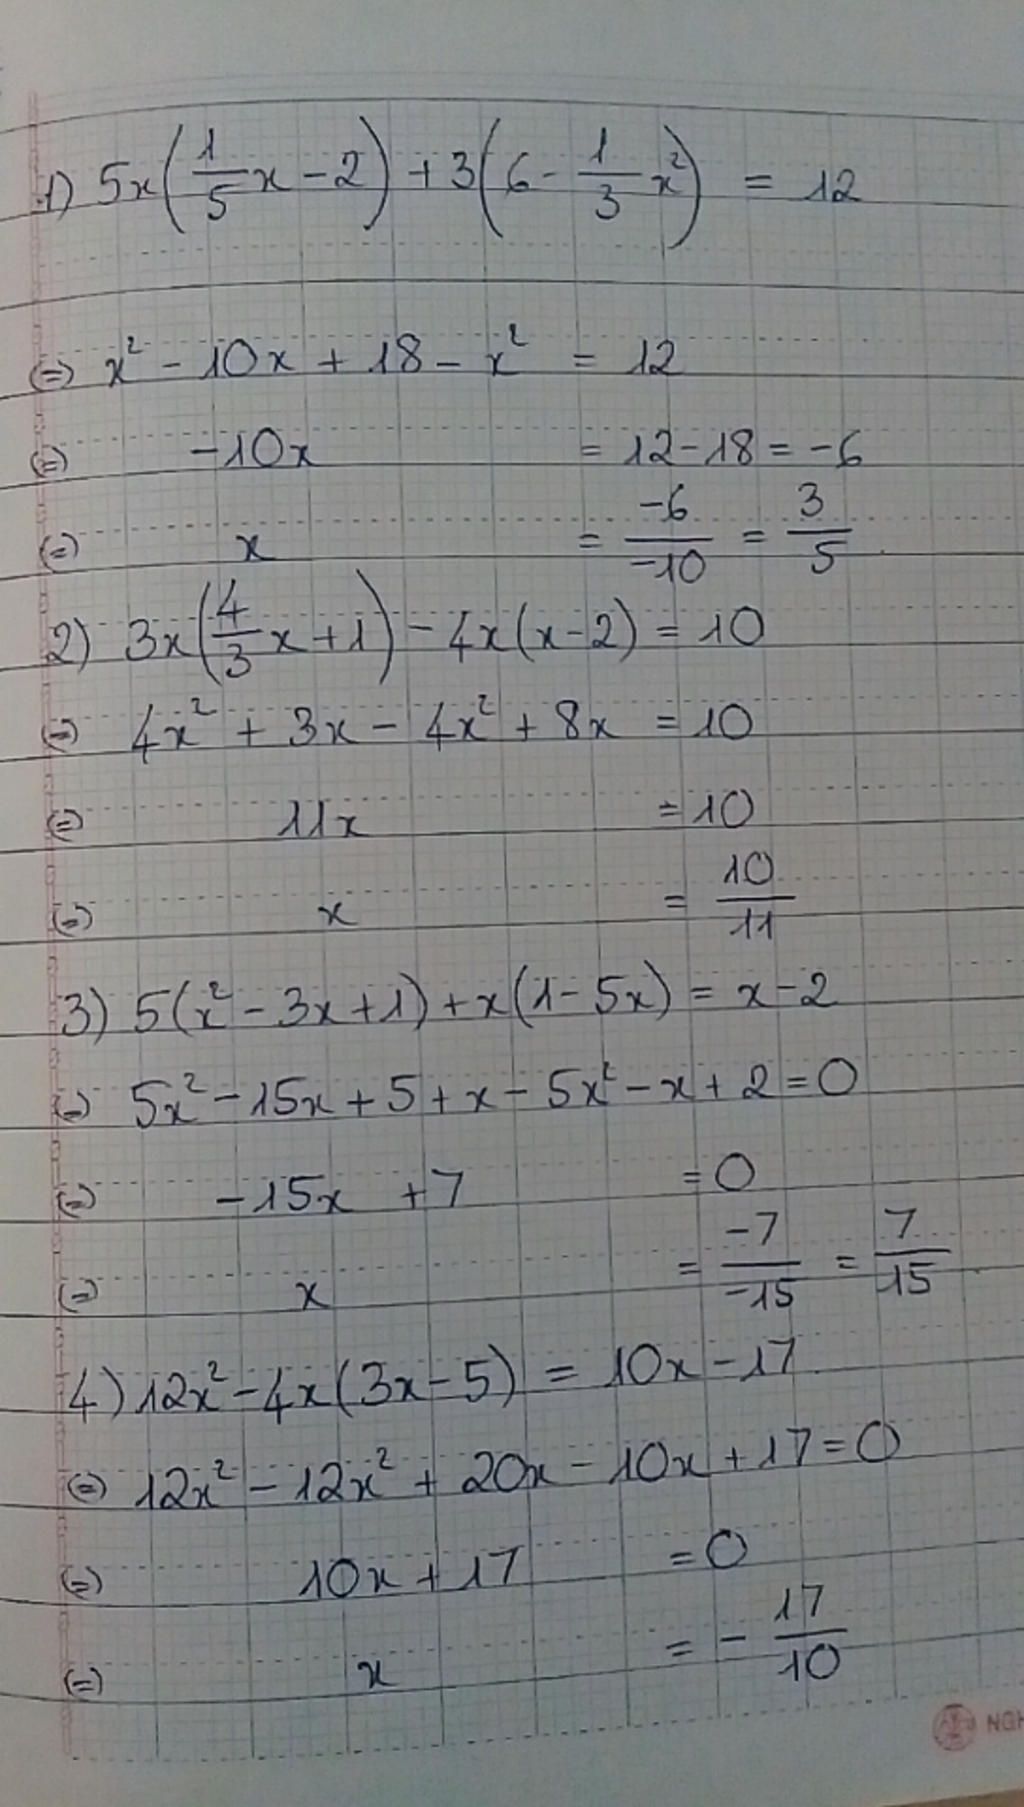 1) 5x(1/5 x - 2) + 3(6 - 1/3 x²) = 12
(=) x² - 10x + 18 - x² = 12
(=) -10x = 12 - 18 = -6
(=) x = -6/-10 = 3/5
2) 3x(4/3 x + 1) - 4x(x - 2) = 10
(=) 4x² + 3x - 4x² + 8x = 10
(=) 11x = 10
(=) x = 10/11
3) 5(x² - 3x + 1) + x(1 - 5x) = x - 2
(=) 5x² - 15x + 5 + x - 5x² - x + 2 = 0
(=) -15x + 7 = 0
(=) x = -7/-15 = 7/15
4) 12x² - 4x(3x - 5) = 10x - 17
(=) 12x² - 12x² + 20x - 10x + 17 = 0
(=) 10x + 17 = 0
(=) x = - 17/10